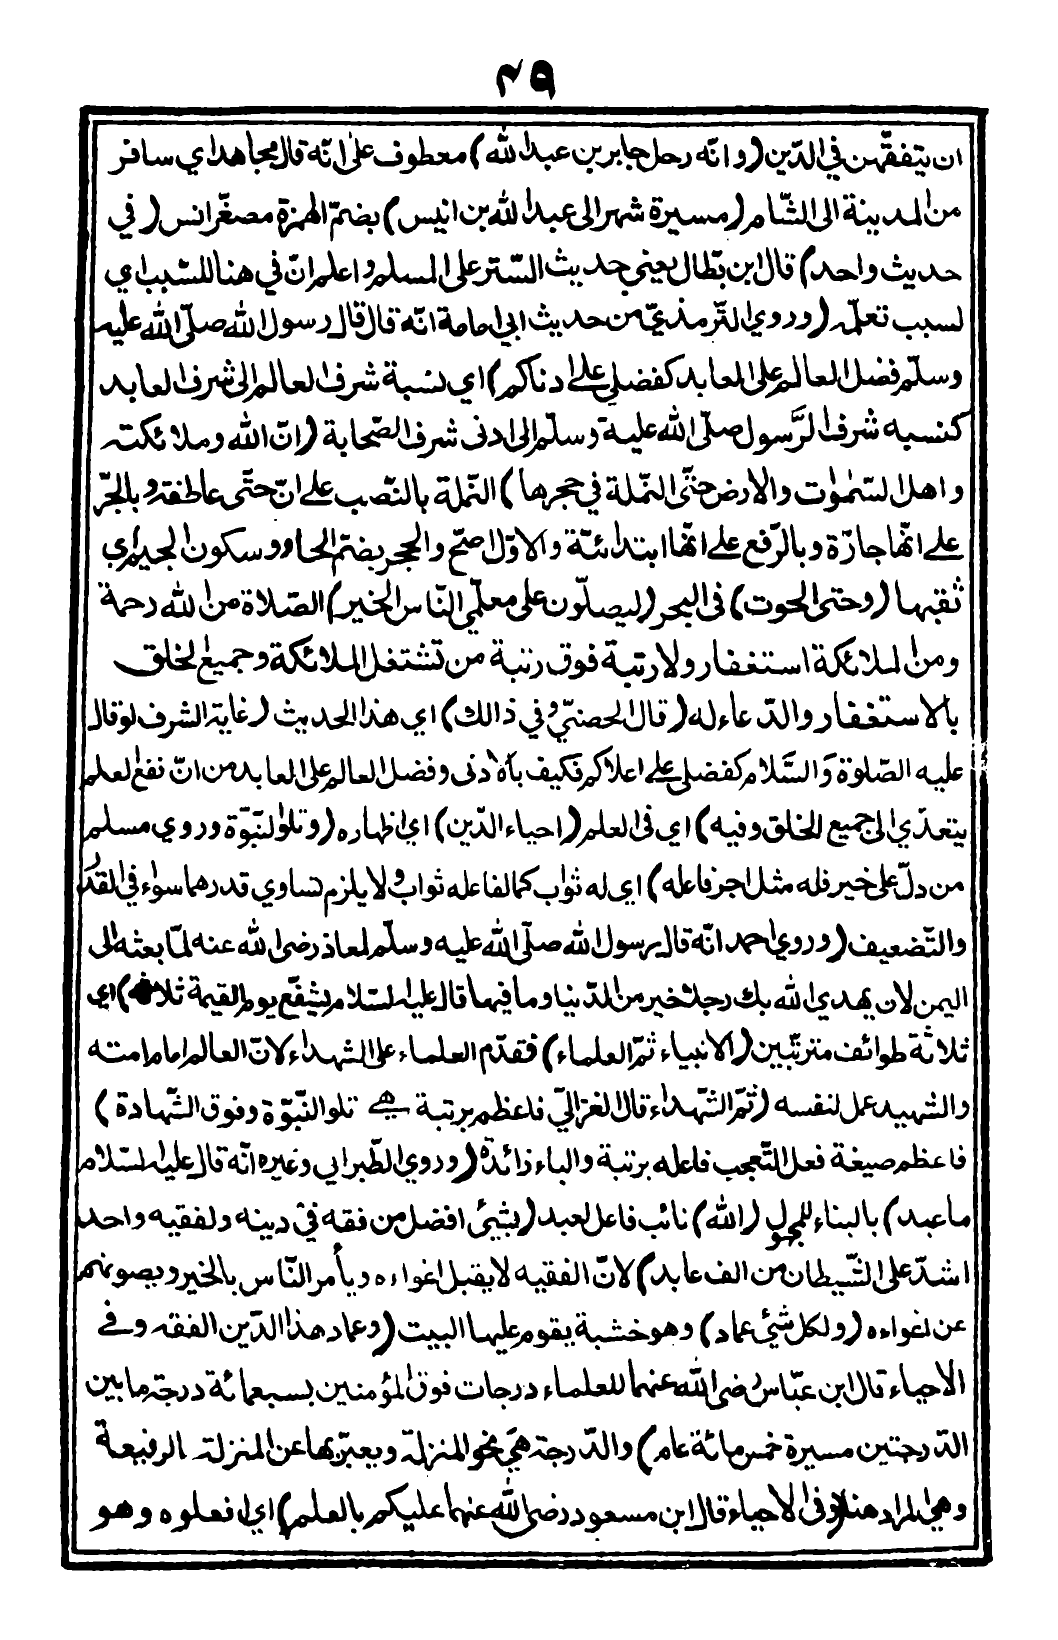 ٤٩
ان يتفقّهن في الدّين (وانّه رحل جابر بن عبد الله) معطوف على انّه قال مجاهد اي سافر
من المدينة الى الشّام (مسيرة شهر الى عبد الله بن انيس) بضمّ الهمزة مصغّر انس (في
حديث واحد) قال ابن بطّال يعني حديث السّتر على المسلم واعلم انّ في هنا للسّبب اي
لسبب تعلّمه (وروي التّرمذيّ من حديث ابي امامة انّه قال قال رسول الله صلّى الله عليه
وسلّم فضل العالم على العابد كفضلي على ادناكم) اي نسبة شرف العالم الى شرف العابد
كنسبه شرف الرَّسول صلّى الله عليه وسلّم الى ادنى شرف الصّحابة (انّ الله وملائكته
واهل السّمٰوات والارض حتّى النّملة في حجرها) النّملة بالنّصب على انّ حتّى عاطفة وبالجرّ
على انّها جارّة وبالرّفع على انّها ابتدائيّة والاوّل اصحّ والحجر بضمّ الحاء وسكون الجيم اي
ثقبها (وحتى الحوت) فى البحر (ليصلّون على معلّمي النّاس الخير) الصّلاة من الله رحمة
ومن الملائكة استغفار ولا رتبة فوق رتبة من تشتغل الملائكة وجميع الخلق
بالاستغفار والدّعاء له (قال الحصنيّ وفي ذالك) اي هذا الحديث (غاية الشرف لو قال
عليه الصّلوة وَالسَّلام كفضلي على اعلاكم فكيف بأدنى وفضل العالم على العابد من انّ نفع العلم
يتعدّي الى جميع الخلق وفيه) اي فى العلم (احياء الدّين) اي اظهاره (وتلو النّبوّة وروي مسلم
من دلّ على خير فله مثل اجر فاعله) اي له ثواب كما لفاعله ثواب ولا يلزم تساوي قدرهما سواء في القدر
والتّضعيف (وروي احمد انّه قال رسول الله صلّى الله عليه وسلّم لمعاذ رضى الله عنه لمّا بعثه الى
اليمن لان يهدي الله بك رجلا خير من الدّنيا وما فيها قال عليه السّلام يشفّع يوم القيمة ثلاثة) اي
ثلاثة طوائف مترتّبين (الانبياء ثمّ العلماء) فقدّم العلماء على الشهداء لانّ العالم امام امته
والشهيد عمل لنفسه (ثمّ الشّهداء قال الغزاليّ فاعظم برتبة هي تلو النبوّة وفوق الشّهادة)
فاعظم صيغة فعل التّعجب فاعله برتبة والباء زائدة (وروي الطّبراني وغيره انّه قال عليه السّلام
ما عبد) بالبناء للمجهول (الله) نائب فاعل لعبد (بشيئ افضل من فقه في دينه ولفقيه واحد
اشدّ على الشّيطان من الف عابد) لانّ الفقيه لا يقبل اغواءه ويأمر النّاس بالخير ويصونهم
عن اغواءه (ولكل شيئ عماد) وهو خشبة يقوم عليها البيت (وعماد هذا الدّين الفقه وفي
الاحياء قال ابن عبّاس رضى الله عنهما للعلماء درجات فوق المؤمنين بسبعمائة درجة ما بين
الدّرجتين مسيرة خمس مائة عام) والدّرجة هي نحو المنزلة ويعبّر بها عن المنزلة الرفيعة
وهي المراد هنا (وفى الاحياء قال ابن مسعود رضى الله عنهما عليكم بالعلم) اي افعلوه وهو